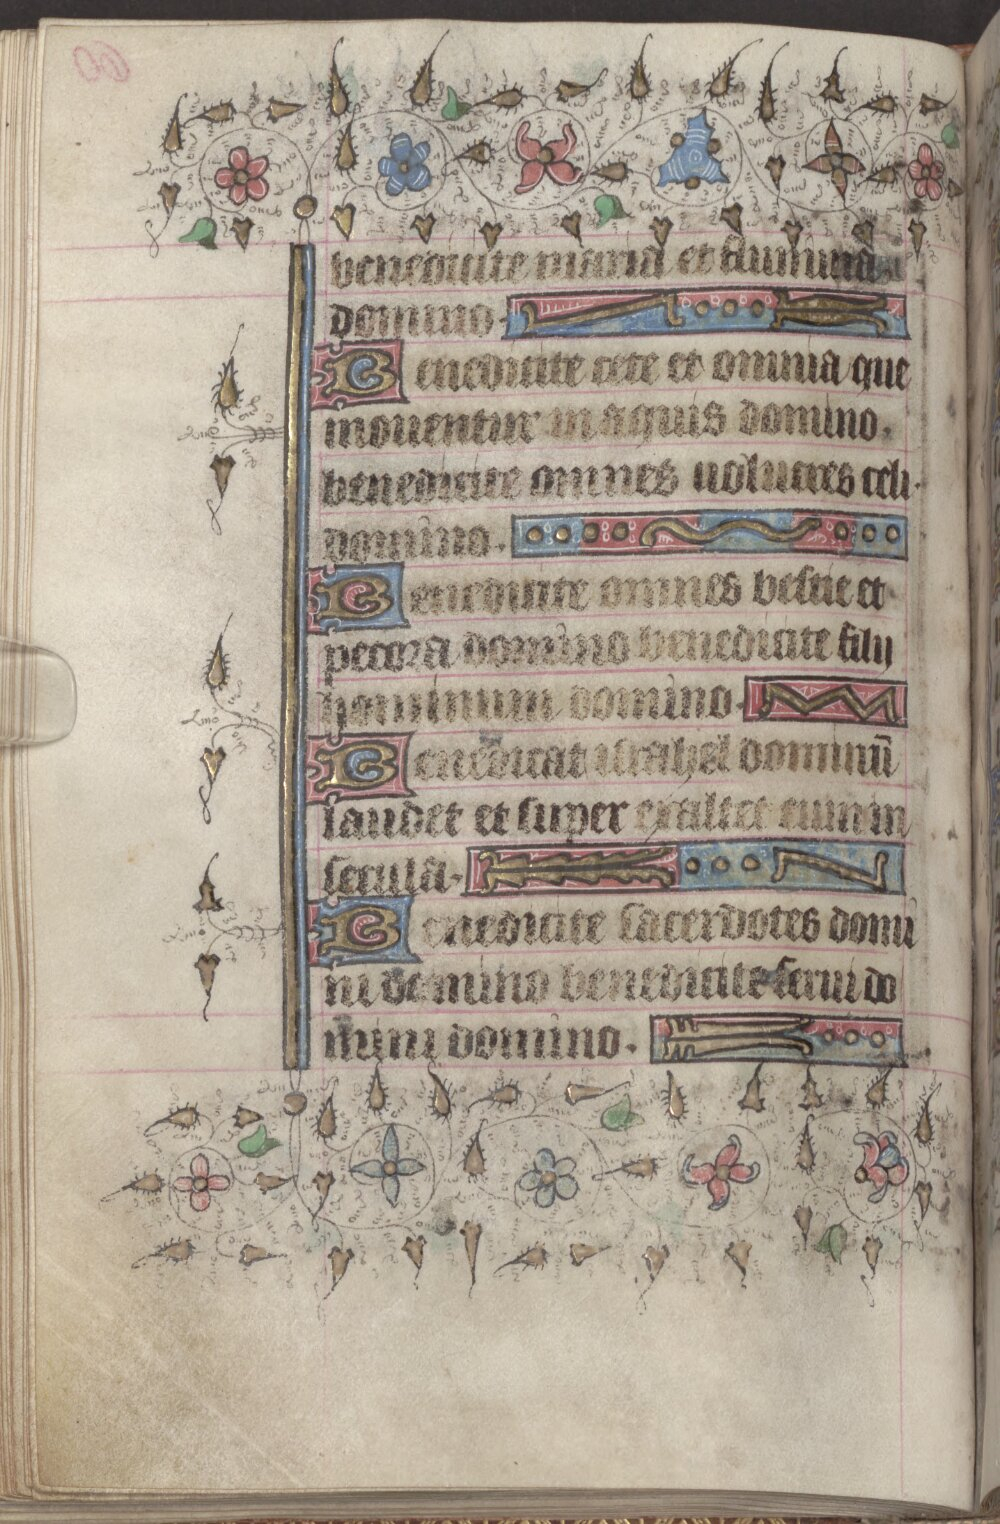 benedicite maria et flumina
domino.
Benedicite cete et omnia que
mouentur in aquis domino.
benedicite omnes uolucres celi
domino.
Benedicite omnes bestie et
pecora domino benedicite filii
hominum domino.
Benedicat israhel dominū
laudet et super exaltet eum in
secula.
Benedicite sacerdotes domi
ni domino benedicite serui do
mini domino.